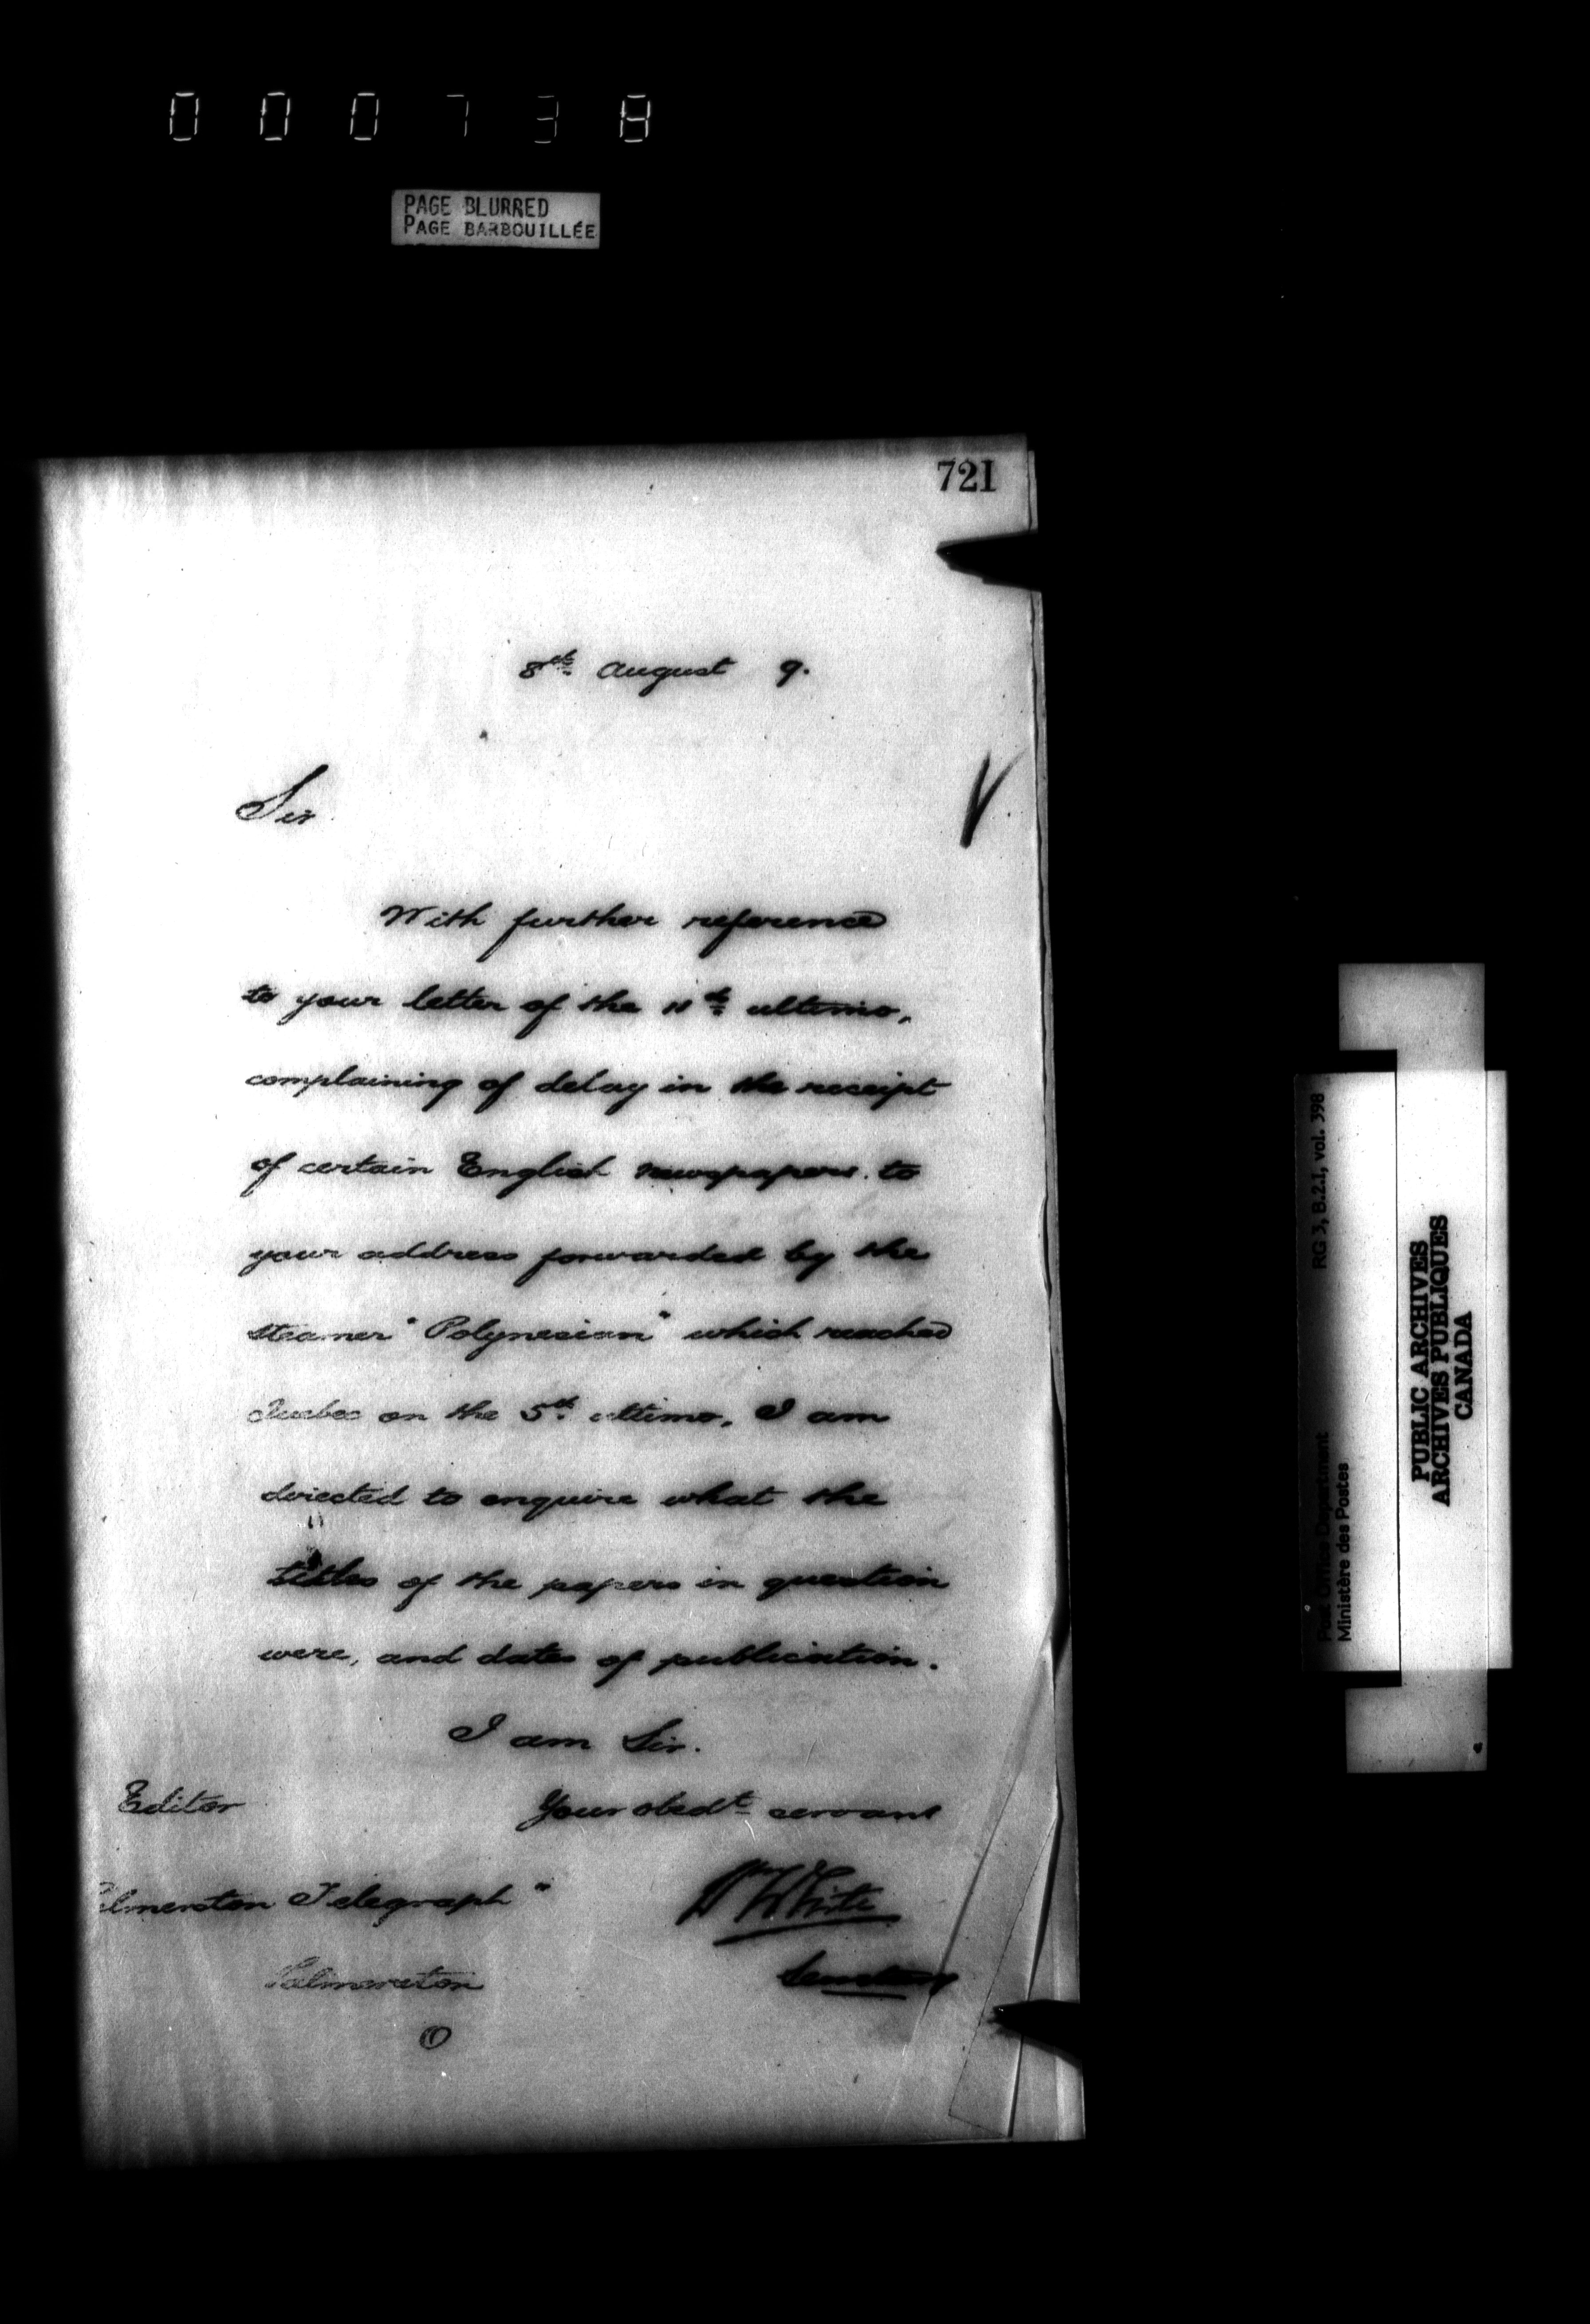 000738
PAGE BLURRED
PAGE BARBOUILLÉE
721
8th August 9.
Sir
With further reference
to your letter of the 11th ultimo,
complaining of delay in the receipt
of certain English newspapers to
your address forwarded by the
steamer "Polynesian" which reached
Quebec on the 5th ultimo, I am
directed to enquire what the
titles of the papers in question
were, and dates of publication.
I am Sir.
Your obedt servant
Wm White
Secretary
Editor
almerston Telegraph"
Palmerston
O
RG 3, B.2.1, vol. 398
Post Office Department
Ministère des Postes
PUBLIC ARCHIVES
ARCHIVES PUBLIQUES
CANADA